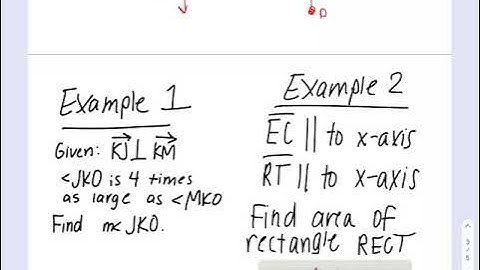 D
Example 1
Given: KJ ⊥ KM
<JKO is 4 times
as large as <MKO
Find m< JKO.
Example 2
EC || to x-axis
RT || to x-axis
Find area of
rectangle RECT
3
/
5